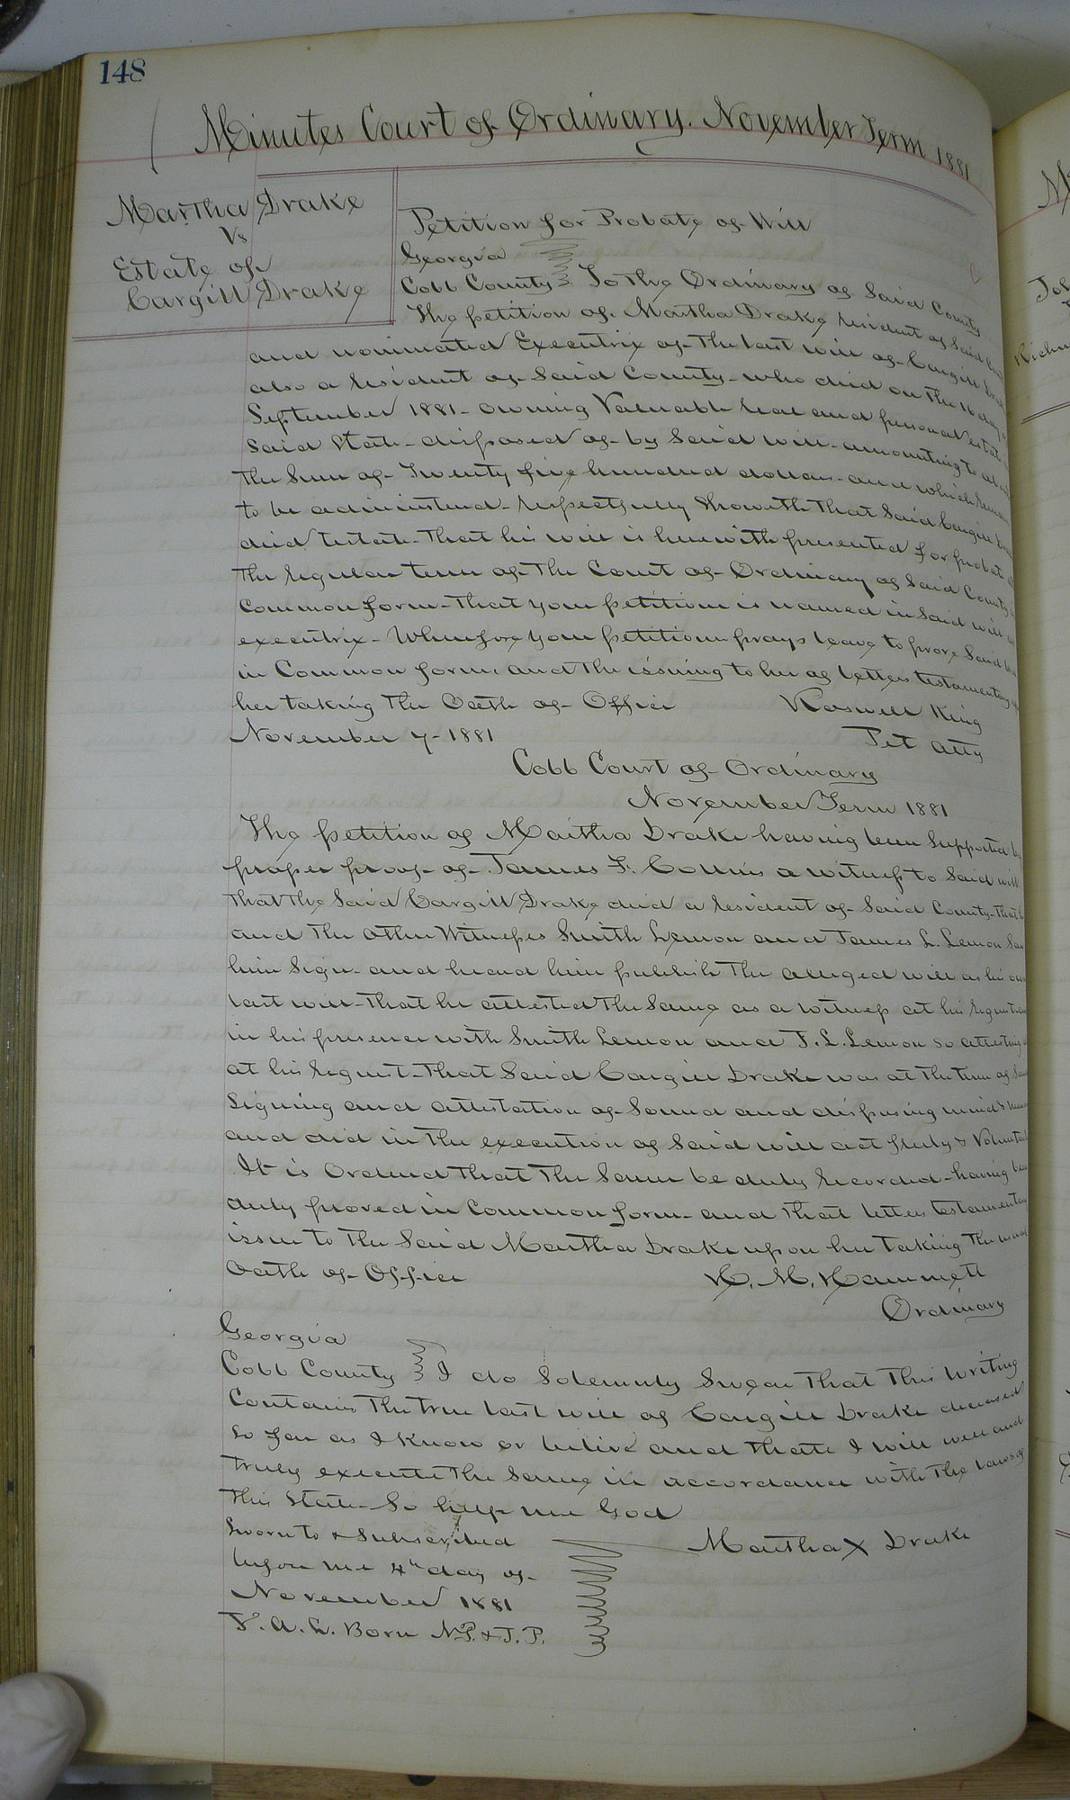 148
Minutes Court of Ordinary. November Term 1881
Martha Drake
Vs
Estate of
Cargill Drake
Petition for Probate of Will
Georgia
Cobb County To the Ordinary of Said County
The petition of Martha Drake resident of Said
and nominated Executrix of the last will of Cargill
also a resident of Said County - who died on the 16 day
September 1881 - owning Valuable real and personal estate
Said State - disposed of by Said will - amounting to
the Sum of Twenty five hundred dollars - and which
to be administered - respectfully Showeth that Said Cargill
died testate - that his will is herewith presented for probate
the regular term of the Court of Ordinary of Said County
Common form - that your petitioner is named in Said will
executrix - Wherefore your petitioner prays leave to prove Said
in Common form, and the issuing to her of letters testamentary
her taking the Oath of Office Roswell King
November 7 - 1881 Pet atty
Cobb Court of Ordinary
November Term 1881
The petition of Martha Drake having been Supported
proper proof of James F. Collins a witness to Said will
that the Said Cargill Drake died a resident of Said County -
and the other Witnesses Smith Lemon and James L. Lemon
him Sign - and heard him publish the alleged will as his
last will - that he attested the Same as a witness at his request
in his presence with Smith Lemon and J. L. Lemon so attesting
at his request - that Said Cargill Drake was at the time of
Signing and attestation of Sound and disposing mind &
and did in the execution of Said will act freely &
It is Ordered that the Same be duly recorded - having
duly proved in Common form - and that letters testamentary
issue to the Said Martha Drake upon her taking the usual
Oath of Office H. M. Hammett
Ordinary
Georgia
Cobb County I do Solemnly Swear that this writing
Contains the true last will of Cargill Drake deceased
So far as I know or belive and thate I will well and
truly execute the Same in accordance with the laws of
this State - So help me God
Sworn to & Subscribed
before me 4th day of
November 1881
F. A. G. Born N.P. & J.P.
Martha X Drake